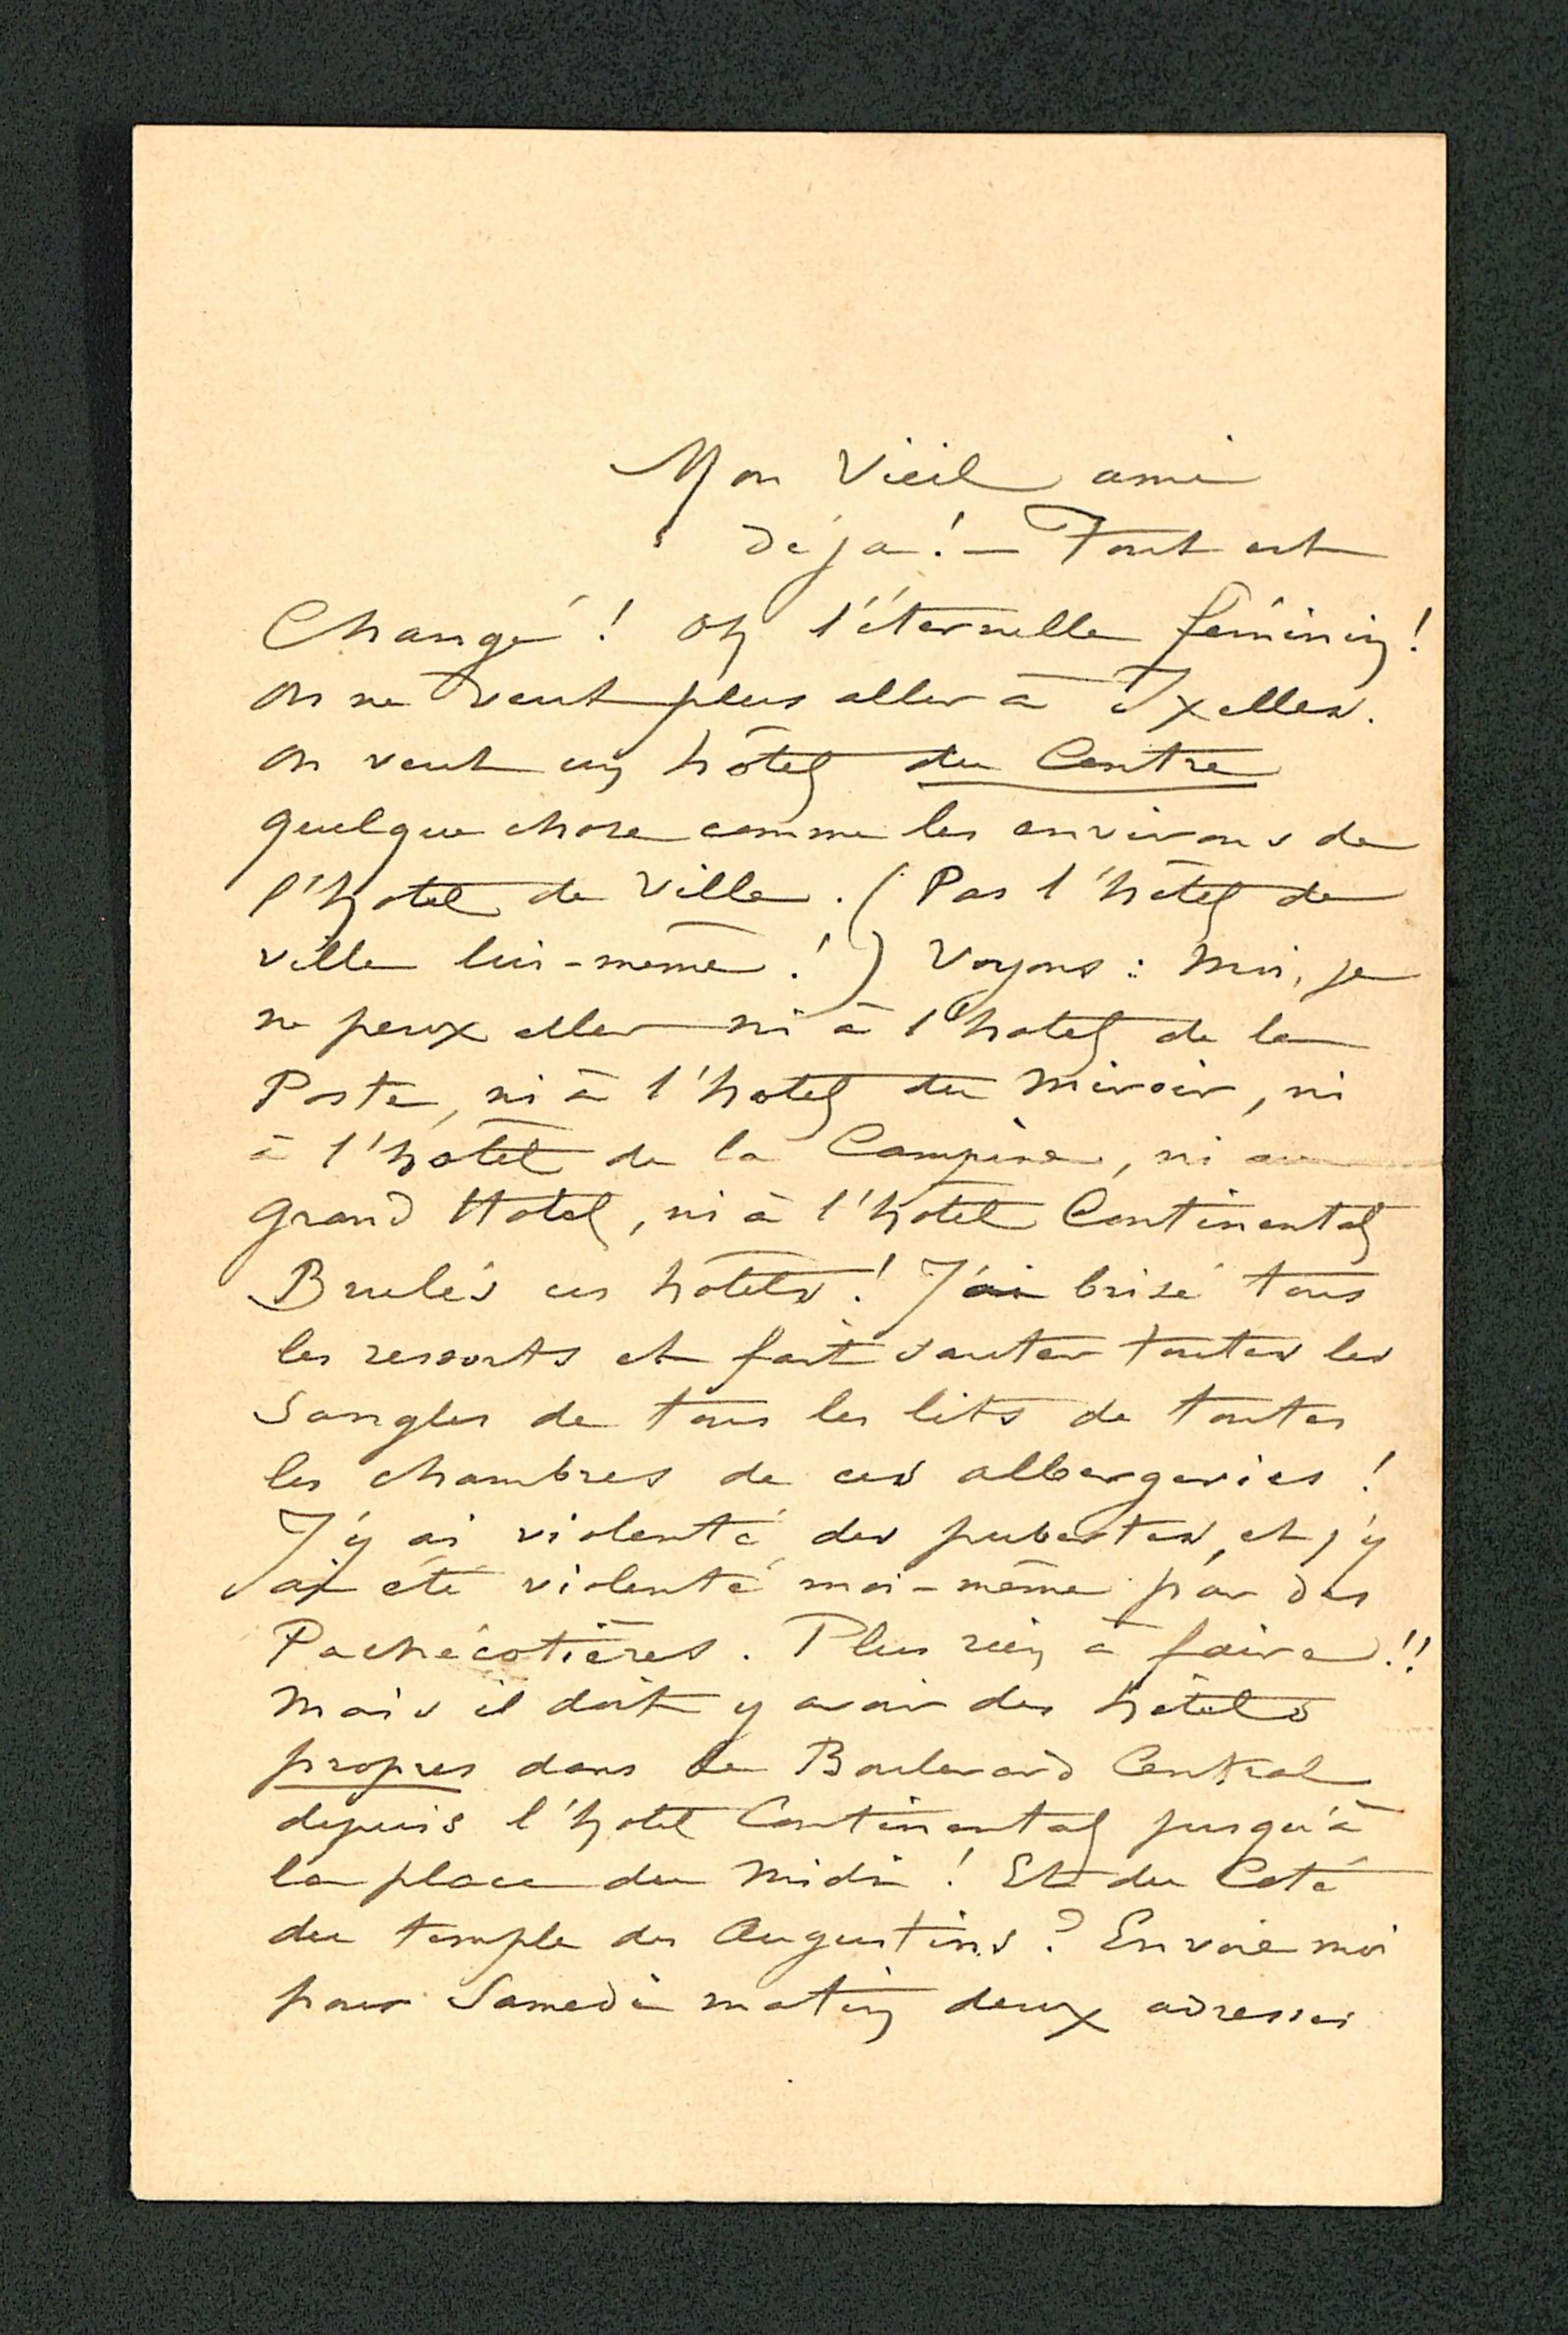 Mon Vieil ami
Déja! — Tout est
Changé! Oh l'éternelle féminin!
On ne veut plus aller à Ixelles.
On veut un hôtel du Centre
quelque chose comme les environs de
l'hotel de Ville. (Pas l'hôtel de
ville lui-même!) Voyons: Moi, je
ne peux aller ni à l'hotel de la
Poste, ni à l'hotel du Miroir, ni
à l'hôtel de la Campine, ni au
Grand Hotel, ni à l'hôtel Continental
Brulés ces hôtels! J'ai brisé tous
les ressorts et fait sauter toutes les
Sangles de tous les lits de toutes
les chambres de ces albergeries!
J'y ai violenté des pubertes, et j'y
ai été violenté moi-même par des
Pachécotières. Plus rien à faire!!
Mais il doit y avoir des hôtels
propres dans le Boulevard Central
depuis l'hotel Continental jusqu'à
la place du Midi! Et du Coté
du temple des Augustins? Envoie moi
pour Samedi matin deux adresses